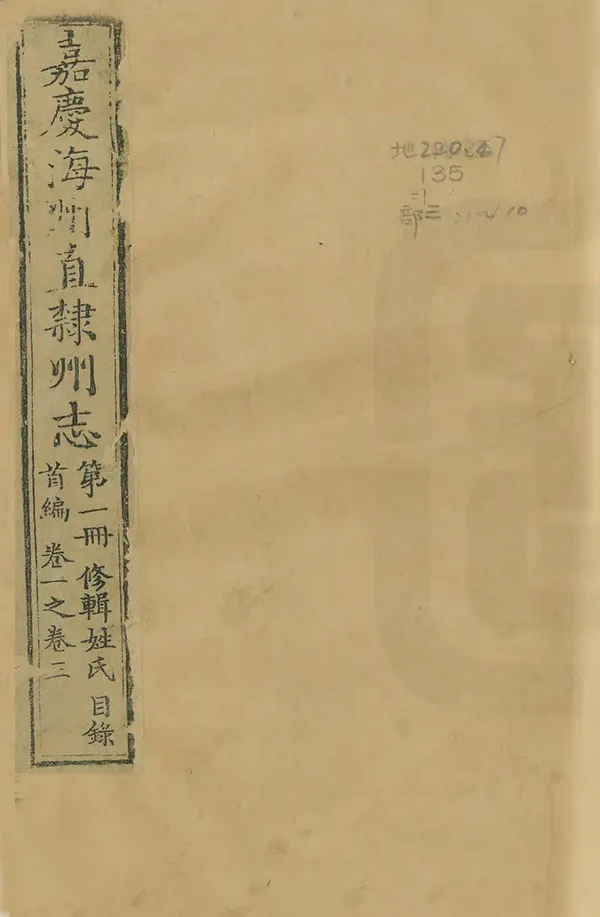 嘉慶海州直隸州志
第一冊 修輯姓氏 目錄
首編 卷一之卷三
地220.67
135